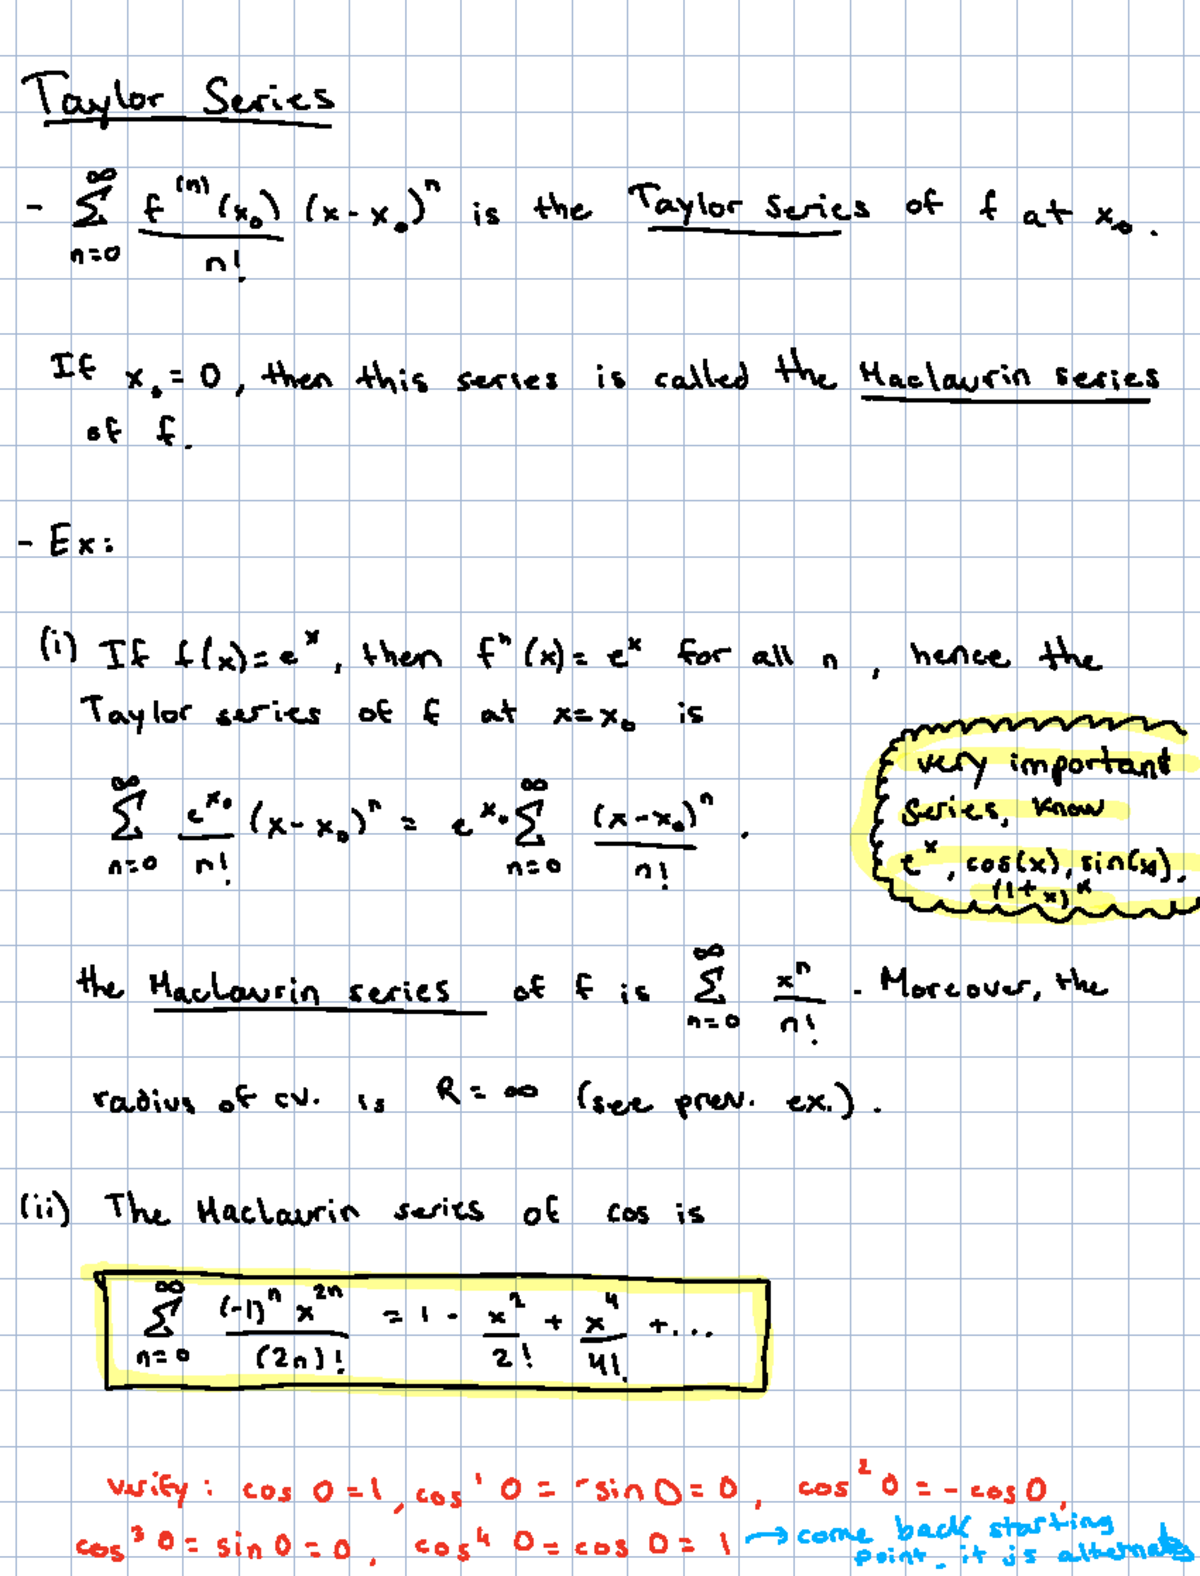 Taylor Series
- ∑_{n=0}^{∞} f^{(n)}(x₀)/n! (x-x₀)^n is the Taylor Series of f at x₀.
If x₀ = 0, then this series is called the Maclaurin series
of f.
- Ex:
(i) If f(x) = e^x, then f^n(x) = e^x for all n, hence the
Taylor series of f at x=x₀ is
∑_{n=0}^{∞} e^{x₀}/n! (x-x₀)^n = e^{x₀} ∑_{n=0}^{∞} (x-x₀)^n/n!.
very important
series, know
e^x, cos(x), sin(x),
(1+x)^α
the Maclaurin series of f is ∑_{n=0}^{∞} x^n/n!. Moreover, the
radius of cv. is R = ∞ (see prev. ex.).
(ii) The Maclaurin series of cos is
∑_{n=0}^{∞} (-1)^n x^{2n}/(2n)! = 1 - x^2/2! + x^4/4! + ...
verify: cos 0 = 1, cos^1 0 = -sin 0 = 0, cos^2 0 = - cos 0,
cos^3 0 = sin 0 = 0, cos^4 0 = cos 0 = 1 → come back starting
point. it is alternate